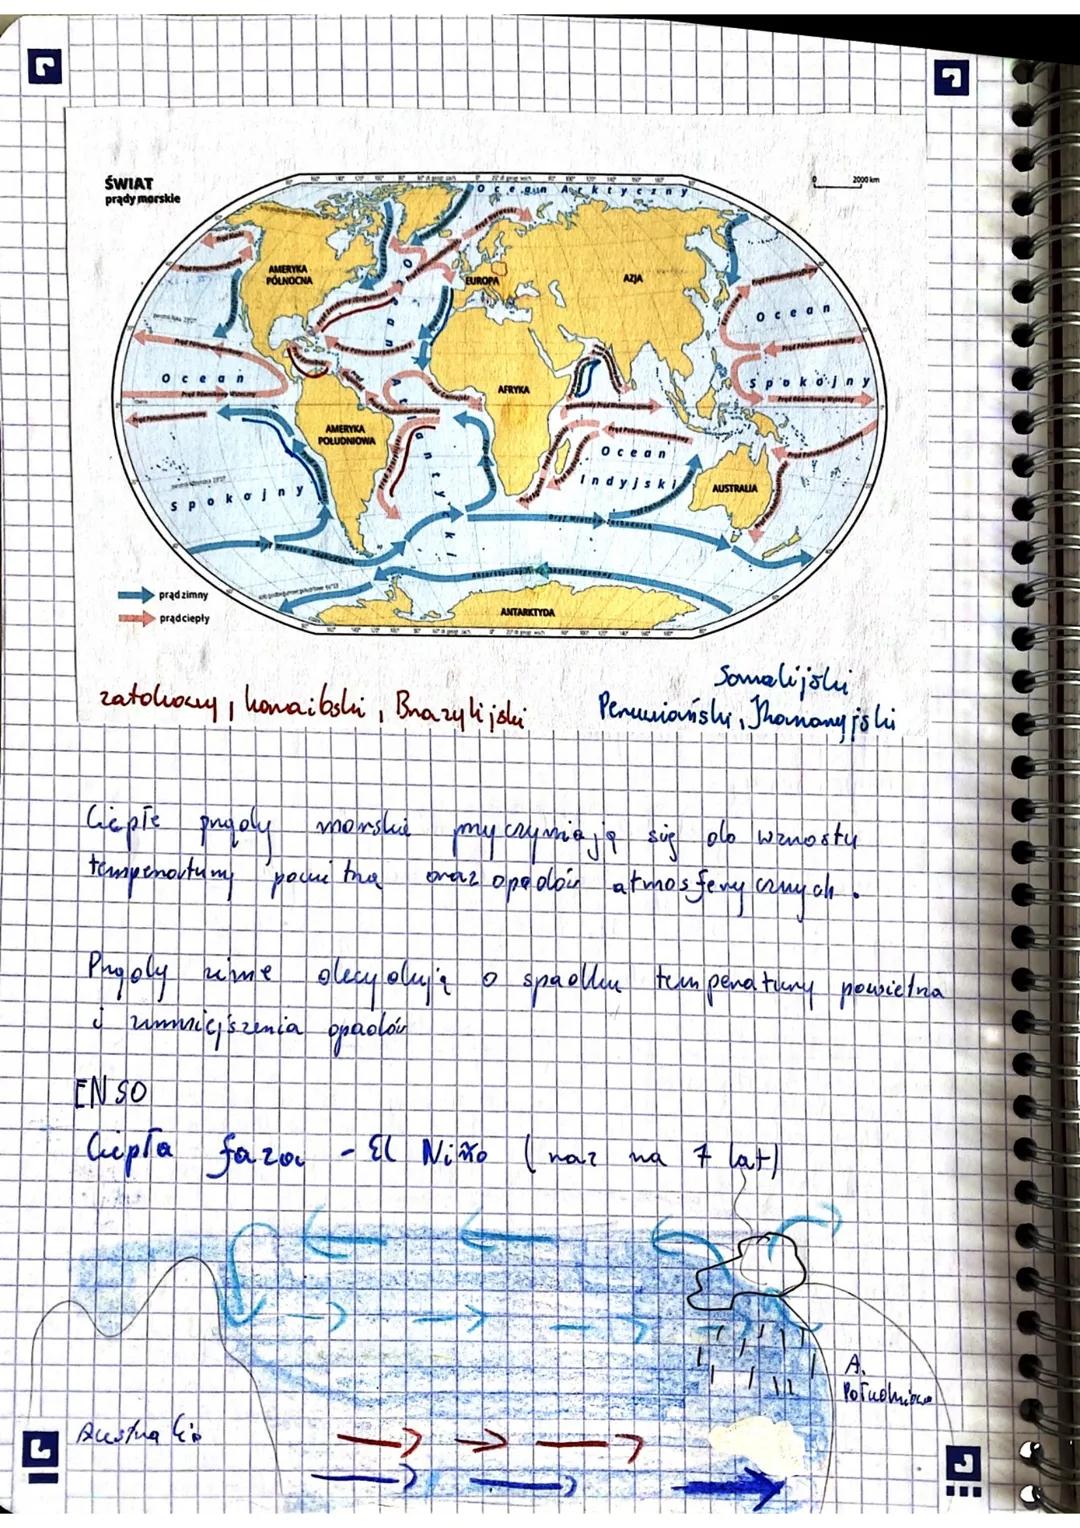 ŚWIAT
prądy morskie
Ocean Arktyczny
0 2000 km
AMERYKA
PÓŁNOCNA
EUROPA
AZJA
Ocean
Spokojny
Ocean
AFRYKA
AMERYKA
POŁUDNIOWA
Atlantycki
Ocean
Indyjski
AUSTRALIA
Spokojny
Dryf Wiatrów Zachodnich
ANTARKTYDA
prąd zimny
prąd ciepły
Somalijski
zatokowy, karaibski, Brazylijski
Peruwiański, Kanaryjski
Ciepłe prądy morskie przyczyniają się do wzrostu
temperatury powietrza oraz opadów atmosferycznych.
Prądy zimne decydują o spadku temperatury powietrza
i zmniejszenia opadów
ENSO
Ciepła faza - El Niño (raz na 7 lat)
A.
Południowa
Australia